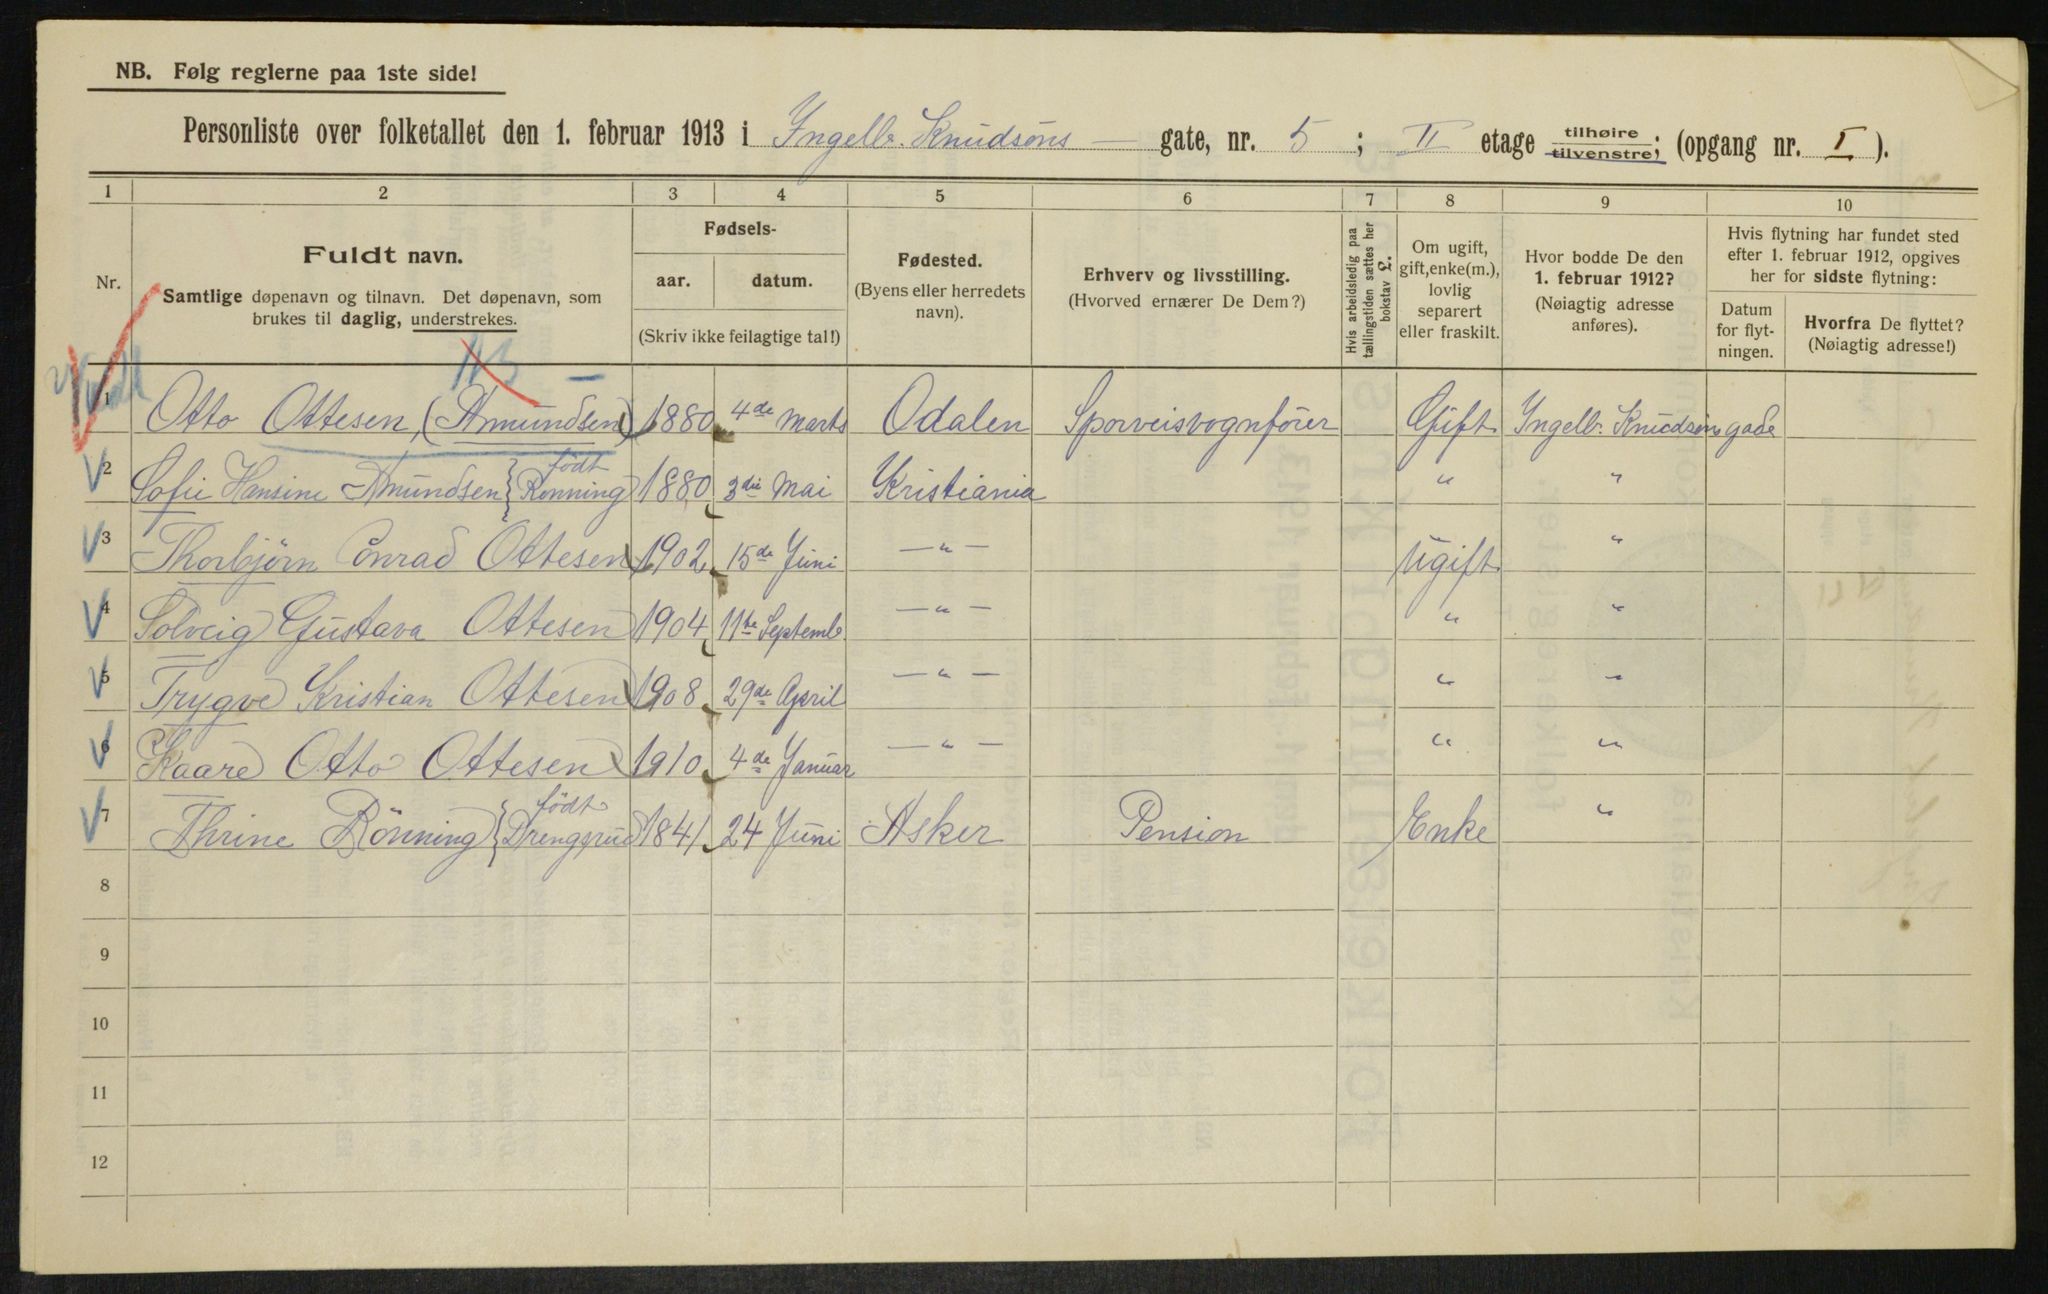 NB. Følg reglerne paa 1ste side!
Personliste over folketallet den 1. februar 1913 i Ingelb. Knudsøns — gate, nr. 5 ; II etage tilhøire tilvenstre; (opgang nr. I ).
1 2 3 4 5 6 7 8 9 10
Nr.
Fuldt navn.
Samtlige døpenavn og tilnavn. Det døpenavn, som
brukes til daglig, understrekes.
Fødsels-
aar. datum.
(Skriv ikke feilagtige tal!)
Fødested.
(Byens eller herredets
navn).
Erhverv og livsstilling.
(Hvorved ernærer De Dem?)
Hvis arbeidsledig paa
tællingstiden sættes her
bokstav L.
Om ugift,
gift, enke(m.),
lovlig
separert
eller fraskilt.
Hvor bodde De den
1. februar 1912?
(Nøiagtig adresse
anføres).
Hvis flytning har fundet sted
efter 1. februar 1912, opgives
her for sidste flytning:
Datum
for flyt-
ningen.
Hvorfra De flyttet?
(Nøiagtig adresse!)
NB
1 Otto Ottesen, (Amundsen) 1880 4de Marts Odalen Sporveisvognfører Gift Ingelb. Knudsøns gade
2 Sofie Hansine Amundsen { født Rønning 1880 3die Mai Kristiania " "
3 Thorbjørn Conrad Ottesen 1902 15de Juni — " — Ugift "
4 Solveig Gustava Ottesen 1904 11te Septemb. — " — " "
5 Trygve Kristian Ottesen 1908 29de April — " — " "
6 Kaare Otto Ottesen 1910 4de Januar — " — " "
7 Thrine Rönning { født Drengsrud 1841 24 Juni Asker Pension Enke "
8
9
10
11
12